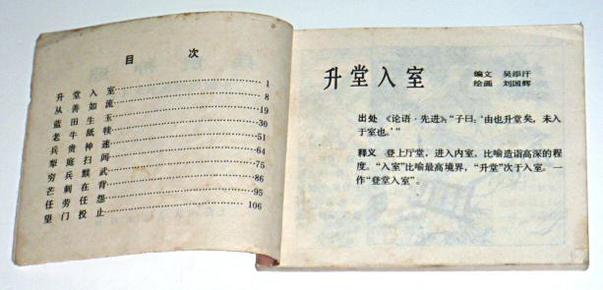 目 次
升堂入室……1
从善如流……8
蓝田生玉……19
老牛舐犊……30
兵贵神速……51
犁庭扫闾……64
穷兵黩武……75
芒刺在背……86
任劳任怨……95
望门投止……106
升堂入室
编文 吴添汗
绘画 刘国辉
出处 《论语·先进》：“子曰：‘由也升堂矣，未入
于室也。’”
释义 登上厅堂，进入内室，比喻造诣高深的程
度。“入室”比喻最高境界，“升堂”次于入室。一
作“登堂入室”。